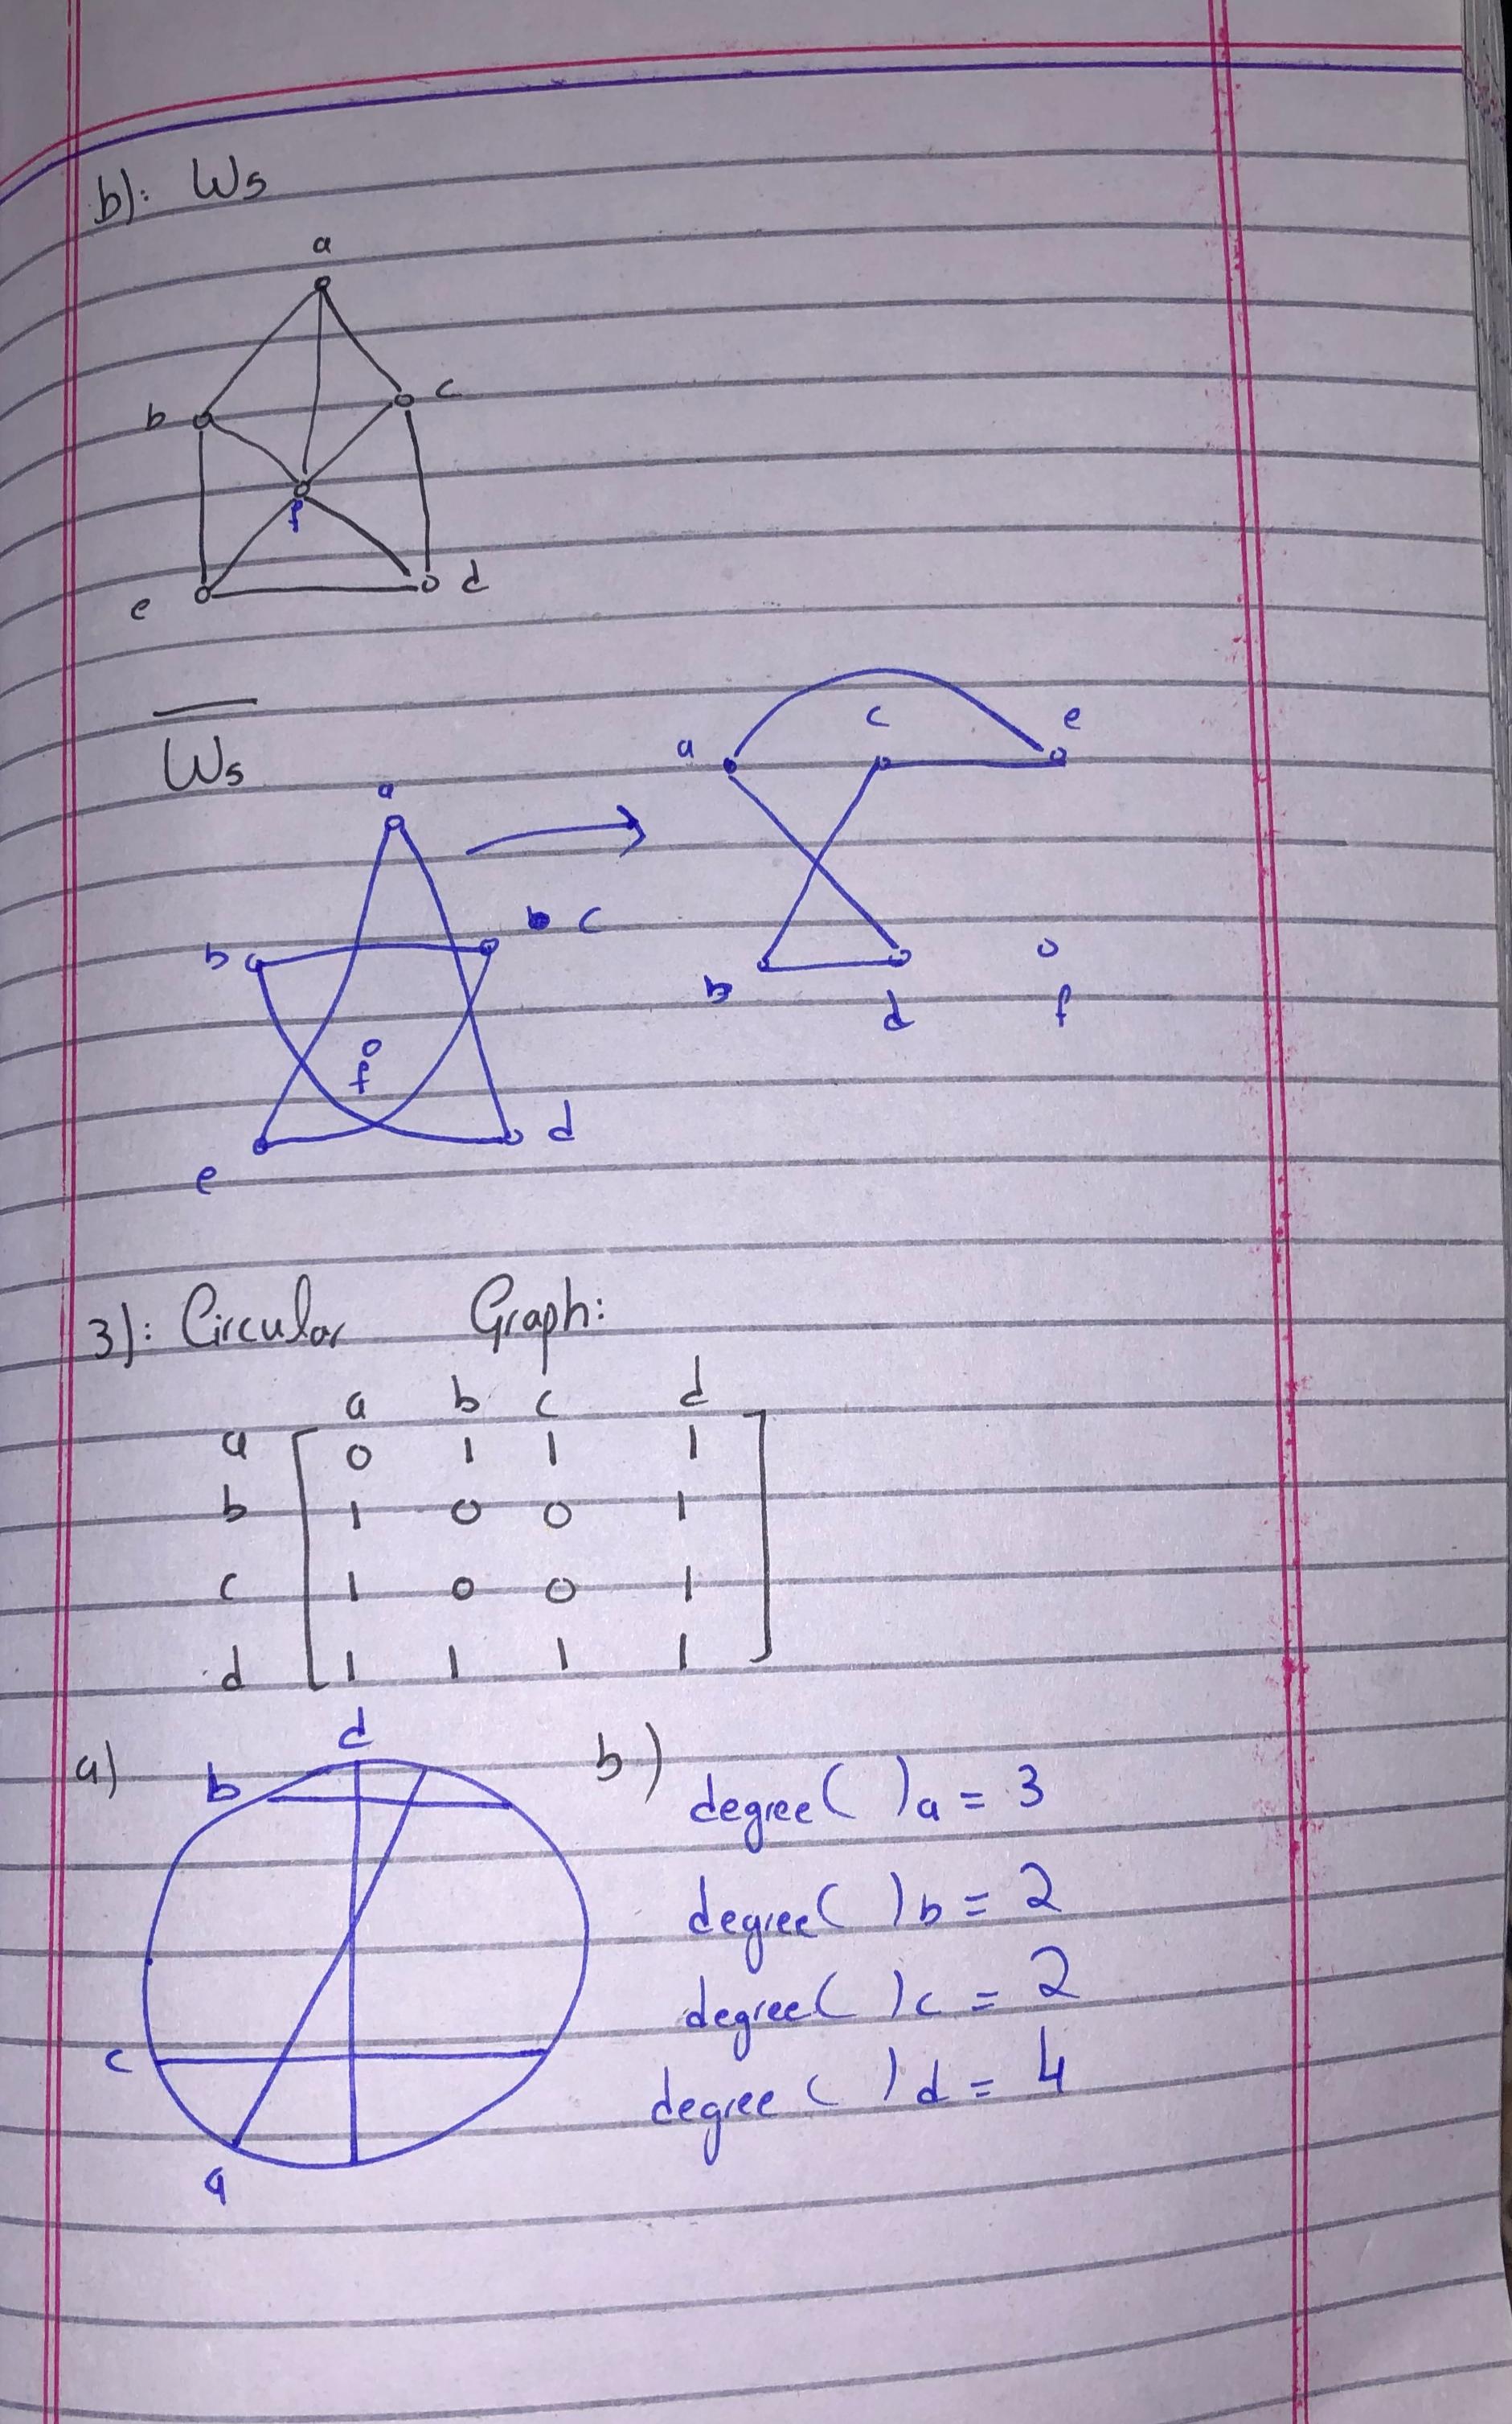 b): W5
a
b c
f
e d
W5
a c e
a
b c
b d f
f
e d
3): Circular Graph:
a b c d
a 0 1 1 1
b 1 0 0 1
c 1 0 0 1
d 1 1 1 1
a) d b)
b
degree( )a = 3
degree( )b = 2
degree( )c = 2
c
degree( )d = 4
a